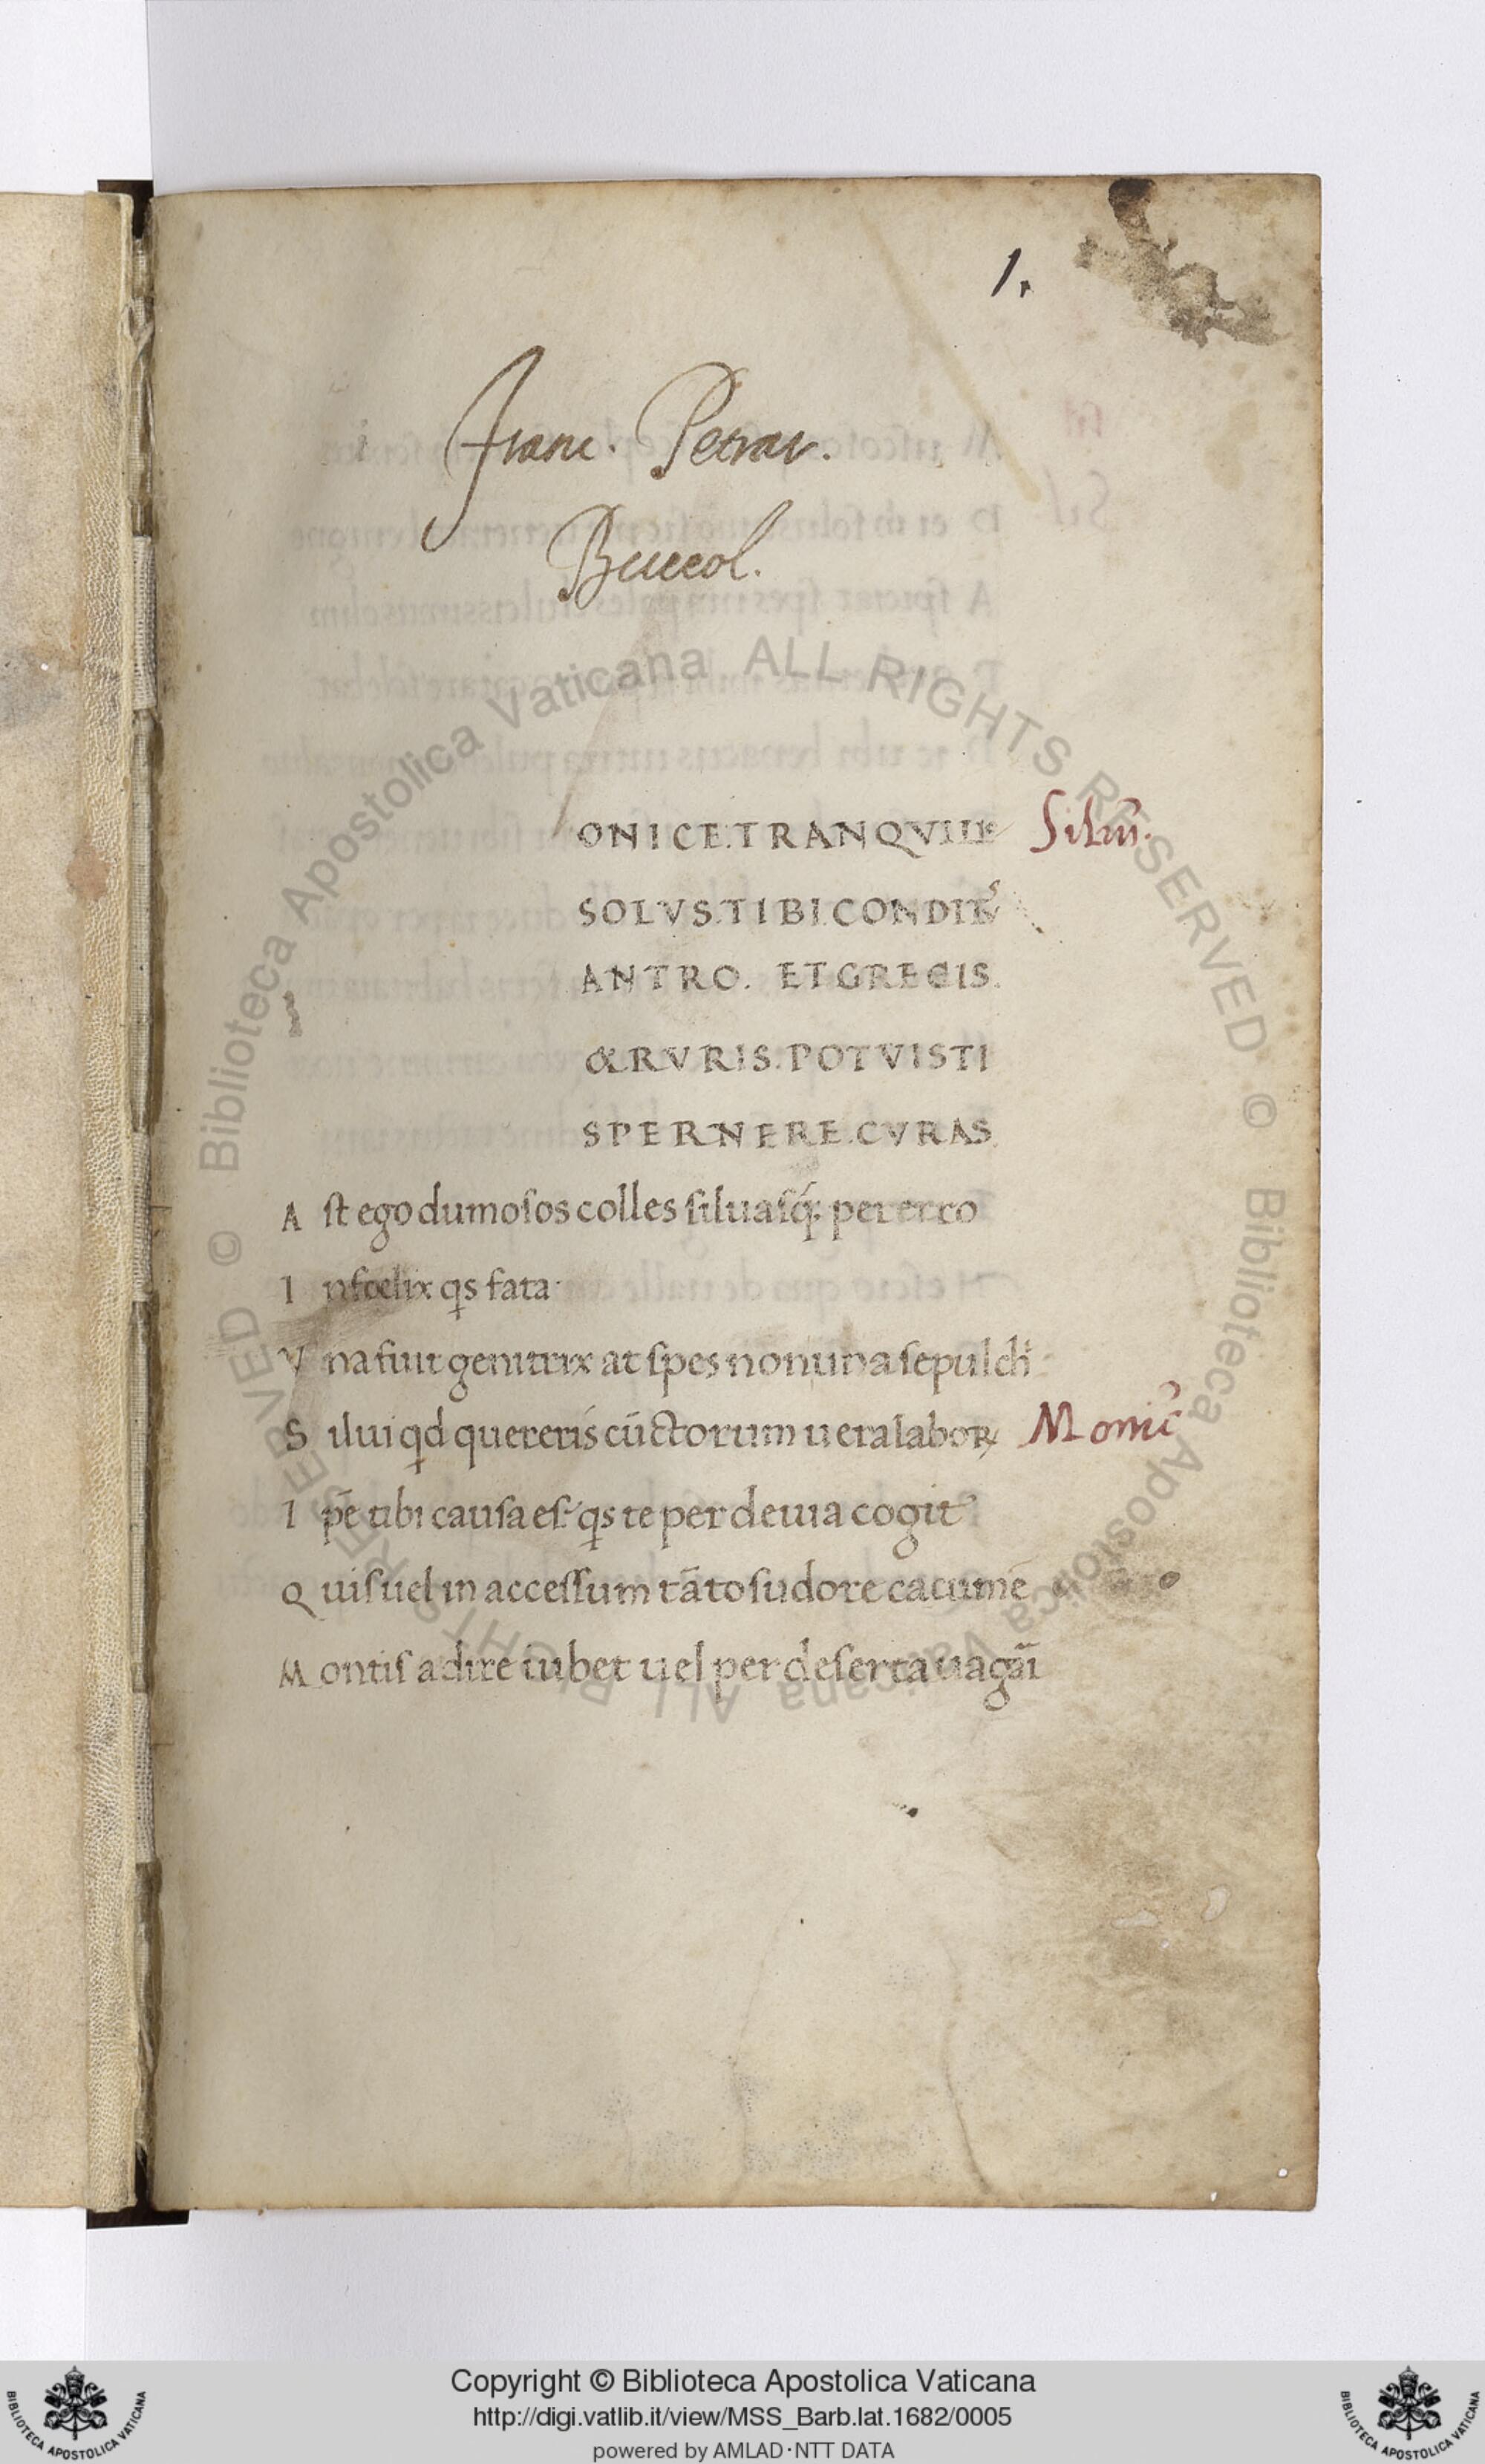 1.
Franc. Petrar.
Buccol.
ONICE. TRANQVILL Siluī.
SOLVS. TIBI. CONDITꝰ
ANTRO. ET GREGIS.
& RVRIS. POTVISTI
SPERNERE. CVRAS
A st ego dumosos colles siluasq́; pererro
I nfoelix qs fata
V na fuit genitrix at spes non una sepulcħ
S ilui qd quereris cūctorum uera laboꝝ Monic̄
I pē tibi causa es. qs te per deuia cogit
Q uis uel in accessum tāto sudore cacumē
M ontis adire iubet uel per deserta uagāi
Copyright © Biblioteca Apostolica Vaticana
http://digi.vatlib.it/view/MSS_Barb.lat.1682/0005
powered by AMLAD·NTT DATA
BIBLIOTECA APOSTOLICA VATICANA
BIBLIOTECA APOSTOLICA VATICANA
© Biblioteca Apostolica Vaticana ALL RIGHTS RESERVED © Biblioteca Apostolica Vaticana ALL RIGHTS RESERVED